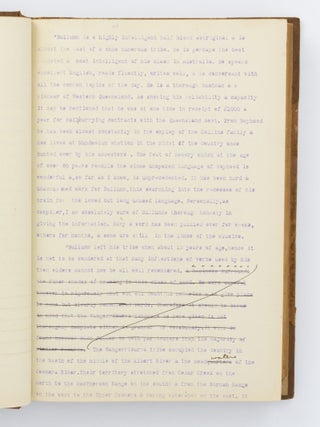 "Bullumm is a highly intelligent half blood aboriginal & is
almost the last of a once numerous tribe. He is perhaps the best
educated & most intelligent of his class in Australia. He speaks
excellent English, reads fluently, writes well, & is conversant with
all the common topics of the day. He is a thorough bushman & a
pioneer of Western Queensland, as showing his reliability & capacity
it may be mentioned that he was at one time in receipt of £1000 a
year for mail carrying contracts with the Queensland Govt. From boyhood
he has been almost constantly in the employ of the Collins family &
now lives at Mundoolun station in the midst of the country once
hunted over by his ancestors. The feat of memory which at the age
of over 60 years recalls the since unspoken language of boyhood is
wonderful & so far as I know, is unprecedented. It has been hard &
unaccustomed work for Bullumm, this searching into the recesses of his
brain for the loved but long unused language. Personally, as
compiler, I am absolutely sure of Bullumms thorough honesty in
giving the information. Many a word has been puzzled over for weeks,
others for months, & some are still in the limbo of the unknown.
"Bullumm left his tribe when about 18 years of age, hence it
is not to be wondered at that many inflections of verbs used by his
then elders cannot now be all well remembered.
The Wangerriburra tribe occupied the country in
the basin of the middle of the Albert River & the headwaters of the
Coomera River. Their territory stretched from Cedar Creek on the
north to the Macpherson Range on the south & from the Birnam Range
on the west to the Upper Coomera & Nerang watershed on the east, it